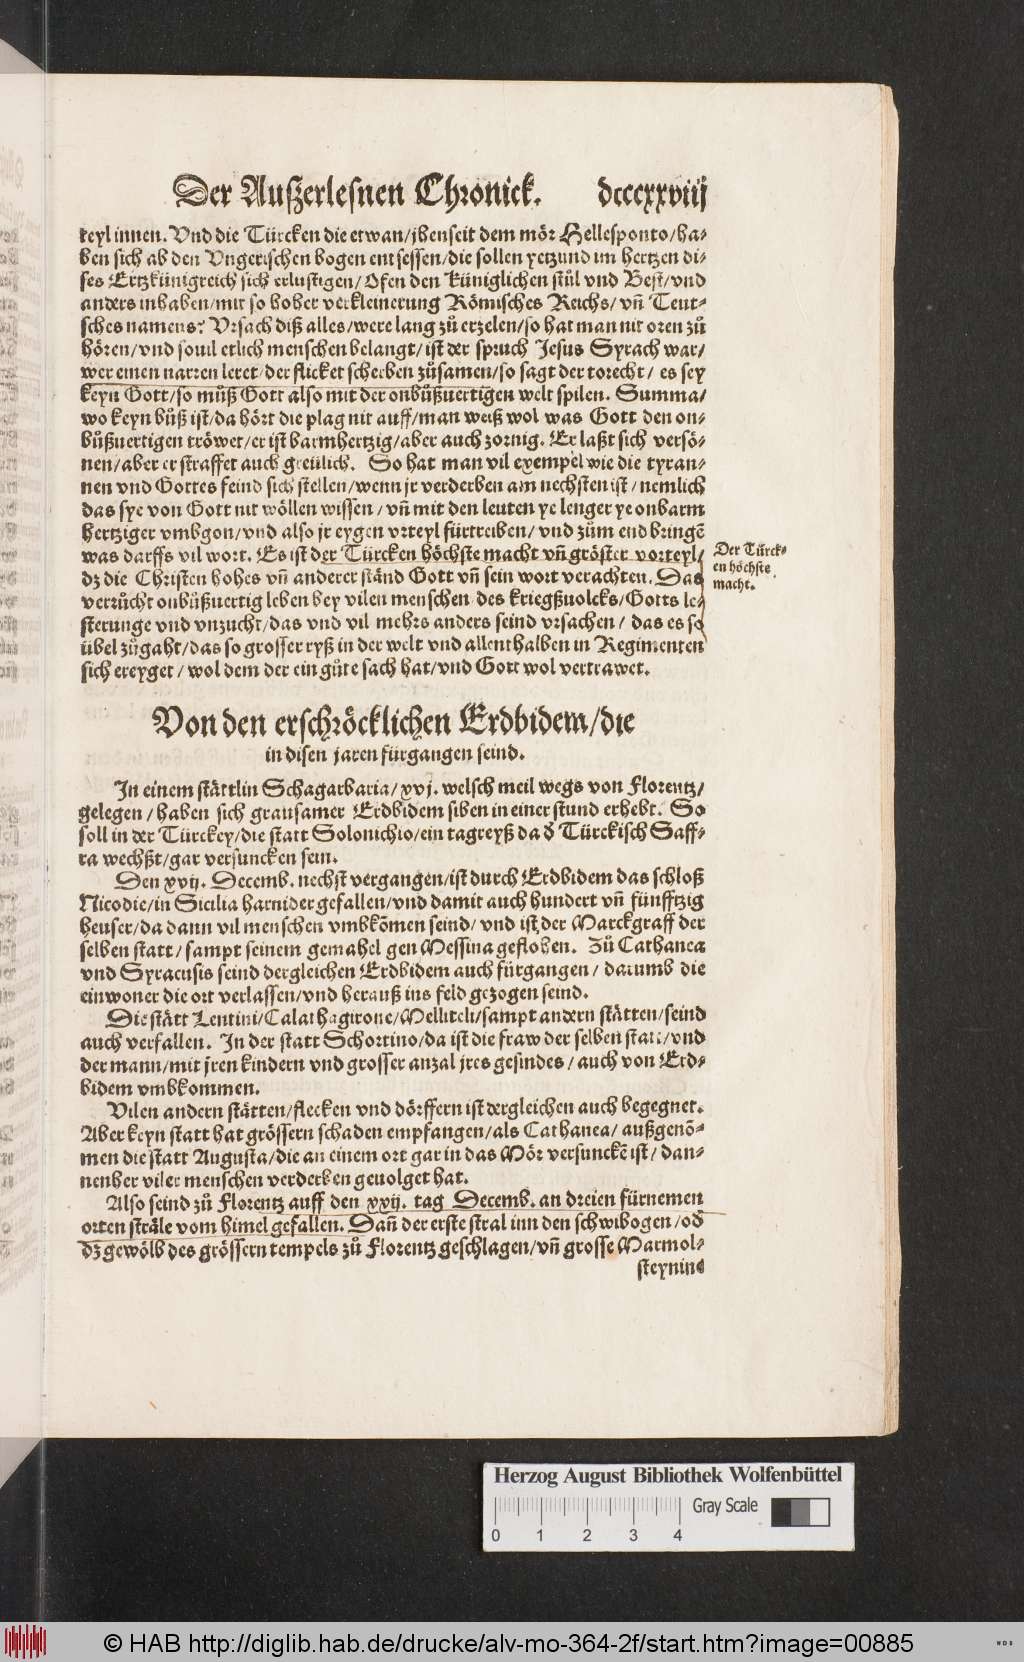 Der Außerlesnen Chronick. dcccxxviij
teyl innen. Vnd die Türcken die etwan/jhenseit dem mör Hellesponto/ha-
ben sich ab den Vngerischen bogen entsessen/die sollen yetzund im hertzen di-
ses Ertzkünigreich sich erlustigen/Ofen den Küniglichen stůl vnd Vest/vnd
anders inhaben/mit so hoher verkleinerung Römisches Reichs/vñ Teut-
sches namens? Vrsach diß alles/were lang zů erzelen/so hat man nit oren zů
hören/vnd souil etlich menschen belangt/ist der spruch Jesus Syrach war/
wer einen narren leret/der flicket scherben zůsamen/so sagt der torecht/ es sey
keyn Gott/so můß Gott also mit der onbůßuertigen welt spilen. Summa/
wo keyn bůß ist/da hört die plag nit auff/man weiß wol was Gott den on-
bůßuertigen tröwet/er ist barmhertzig/aber auch zornig. Er laßt sich versö-
nen/aber er straffet auch greülich. So hat man vil exempel wie die tyran-
nen vnd Gottes feind sich stellen/wenn jr verderben am nechsten ist/nemlich
das sye von Gott nit wöllen wissen/vñ mit den leuten ye lenger ye onbarm
hertziger vmbgon/vnd also jr eygen vrteyl fürtreiben/vnd zům end bringẽ
was darffs vil wort. Es ist der Türcken höchste macht vñ gröster vorteyl/
dz die Christen hohes vñ anderer ständ Gott vñ sein wort verachten. Das
verrůcht onbůßuertig leben bey vilen menschen des kriegßuolcks/Gotts le-
sterunge vnd vnzucht/das vnd vil mehrs anders seind vrsachen/ das es so
übel zůgaht/das so grosser ryß in der welt vnd allenthalben in Regimenten
sich ereyget/wol dem der ein gůte sach hat/vnd Gott wol vertrawet.
Der Türck-
en höchste
macht.
Von den erschröcklichen Erdbidem/die
in disen jaren fürgangen seind.
In einem stättlin Schagarbaria/xvj. welsch meil wegs von Florentz/
gelegen/haben sich grausamer Erdbidem siben in einer stund erhebt. So
soll in der Türckey/die statt Solonichio/ein tagreyß da d̃ Türckisch Saff-
ra wechßt/gar versuncken sein.
Den xvij. Decemb. nechst vergangen/ist durch Erdbidem das schloß
Nicodie/in Sicilia harnider gefallen/vnd damit auch hundert vñ fünfftzig
heuser/da dann vil menschen vmbkõmen seind/vnd ist der Marckgraff der
selben statt/sampt seinem gemahel gen Messina geflohen. Zů Cathanea
vnd Syracusis seind dergleichen Erdbidem auch fürgangen/darumb die
einwoner die ort verlassen/vnd herauß ins feld gezogen seind.
Die stätt Lentini/Calathagirone/Melliteli/sampt andern stätten/seind
auch verfallen. In der statt Schortino/da ist die fraw der selben statt/vnd
der mann/mit jren kindern vnd grosser anzal jres gesindes/auch von Erd-
bidem vmbkommen.
Vilen andern stätten/flecken vnd dörffern ist dergleichen auch begegnet.
Aber keyn statt hat grössern schaden empfangen/als Cathanea/außgenõ-
men die statt Augusta/die an einem ort gar in das Mör versunckẽ ist/dan-
nenher viler menschen verderben geuolget hat.
Also seind zů Florentz auff den xxij. tag Decemb. an dreien fürnemen
orten sträle vom himel gefallen. Dañ der erste stral inn den schwibogen/od̃
dz gewölb des grössern tempels zů Florentz geschlagen/vñ grosse Marmol-
steynine
Herzog August Bibliothek Wolfenbüttel
0 1 2 3 4 Gray Scale
© HAB http://diglib.hab.de/drucke/alv-mo-364-2f/start.htm?image=00885